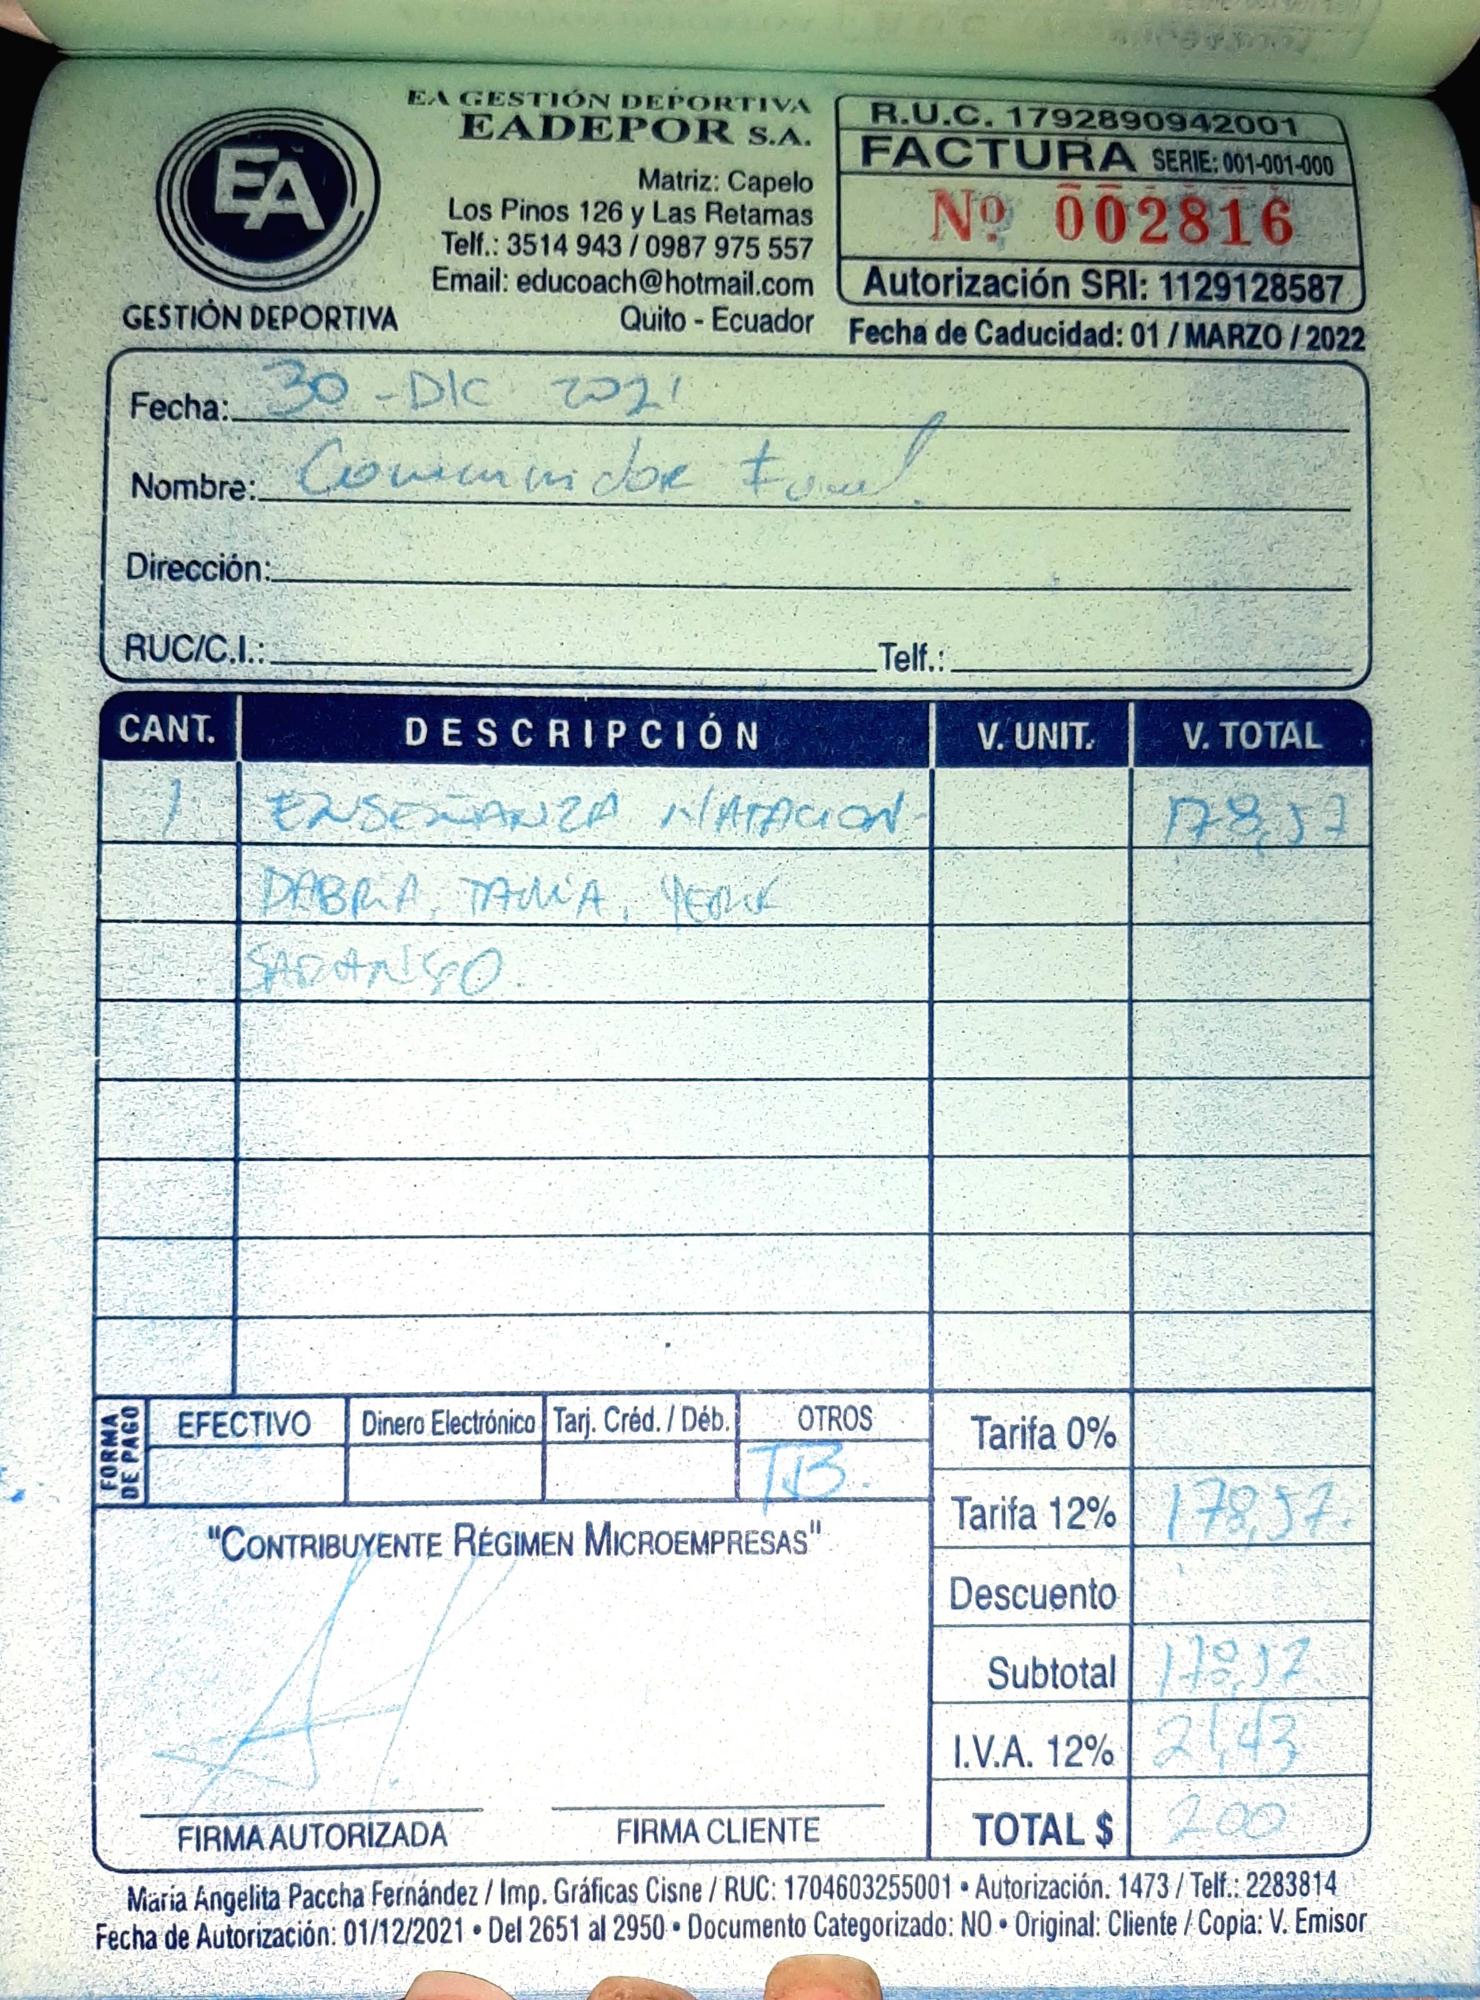 EA GESTIÓN DEPORTIVA
EADEPOR S.A.
EA
GESTIÓN DEPORTIVA
Matriz: Capelo
Los Pinos 126 y Las Retamas
Telf.: 3514 943 / 0987 975 557
Email: educoach@hotmail.com
Quito - Ecuador
R.U.C. 1792890942001
FACTURA SERIE: 001-001-000
Nº 002816
Autorización SRI: 1129128587
Fecha de Caducidad: 01 / MARZO / 2022
Fecha: 30 - DIC 2021
Nombre: Consumidor Final
Dirección:
RUC/C.I.: Telf.:
CANT. DESCRIPCIÓN V. UNIT. V. TOTAL
1 ENSEÑANZA NATACION 178,57
TAMIA,
FORMA DE PAGO
EFECTIVO Dinero Electrónico Tarj. Créd. / Déb. OTROS
T.B.
Tarifa 0%
Tarifa 12% 178,57.
Descuento
Subtotal 178,57
I.V.A. 12% 21,43
TOTAL $ 200
"CONTRIBUYENTE RÉGIMEN MICROEMPRESAS"
FIRMA AUTORIZADA FIRMA CLIENTE
María Angelita Paccha Fernández / Imp. Gráficas Cisne / RUC: 1704603255001 • Autorización. 1473 / Telf.: 2283814
Fecha de Autorización: 01/12/2021 • Del 2651 al 2950 • Documento Categorizado: NO • Original: Cliente / Copia: V. Emisor